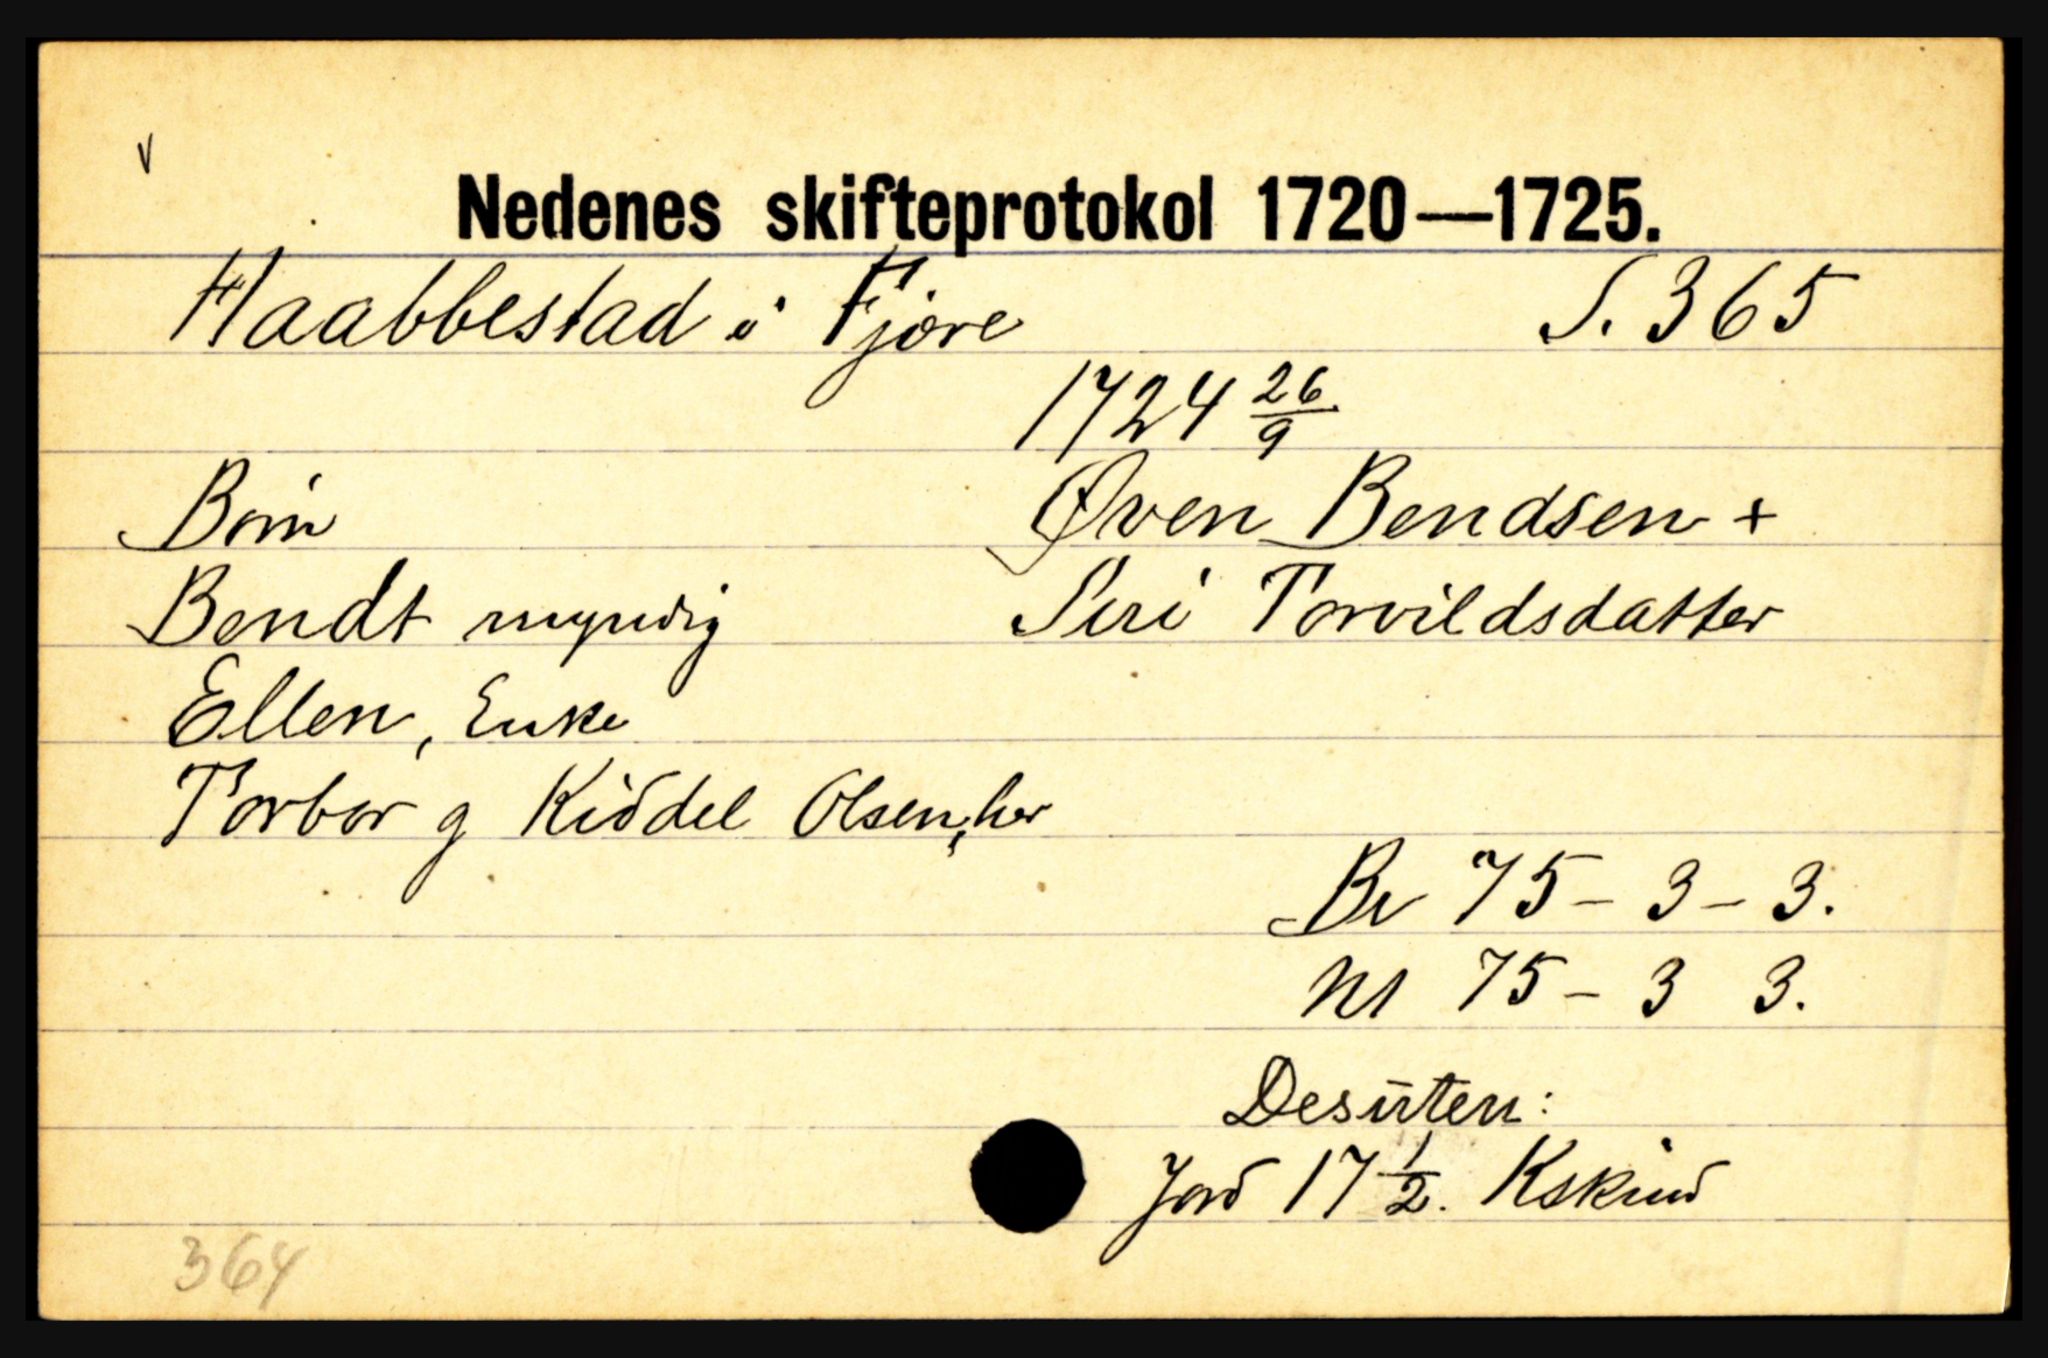 v
Nedenes skifteprotokol 1720—1725.
Haabbestad i Fjære S. 365
1724 26/9
Børn Øven Bendsen +
Bendt myndig Siri Torvildsdatter
Ellen, Enke
Torborg Kiddel Olsen, her
Br 75 - 3 - 3.
Nt 75 - 3 3.
Desuten:
Jord 17 1/2. Kskind
364